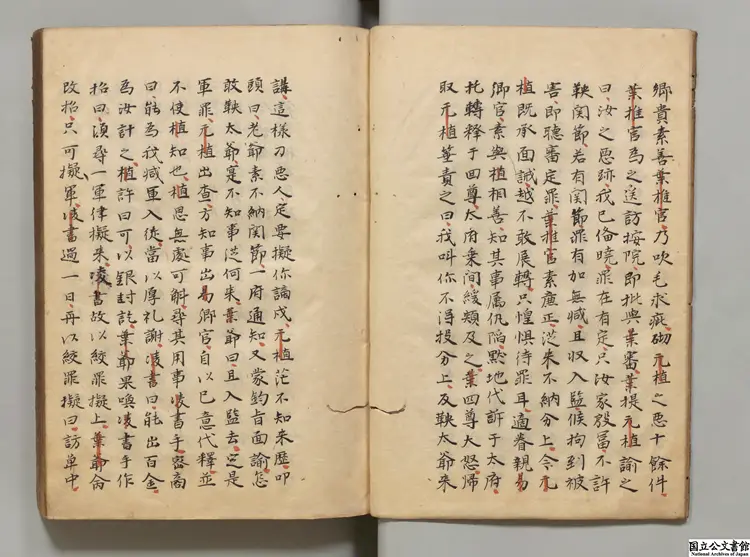 鄉貴素善葉推官乃吹毛求疵砌元植之惡十餘件
葉推官為之送訪按院即批與葉審葉提元植諭之
曰汝之惡跡我已俻曉罪在有定只汝家殷冨不許
鞅関節若有関節罪有加無减且收入監候拘到被
害即聽審定罪葉推官素廉正從來不納分上今元
植既承面誡越不敢展轉只惶惧待罪耳適眷親易
鄉官素與植相善知其事属仇陷黙地代訴于太府
托轉釋于四尊太府乗间緩頬及之葉四尊大怒㷌
取元植筆責之曰我叫你不得投分上反鞅太爺來
講這樣刁悪人定要擬你謫戍元植茫不知来歴叩
頭曰老爺素不納関節一府通知又蒙鈞旨面諭怎
敢鞅太爺寔不知事從何来葉爺曰且入監去定是
軍罪元植出查方知事出易鄉官自以已意代釋並
不使植知也植思無處可觧尋其用事凌書手密商
曰能為我减軍入徒當以厚礼謝凌書曰能出百金
為汝計之植許曰可以銀封訖葉爺果喚凌書手作
招曰湏尋一軍律擬来凌書故以絞罪擬上葉爺命
改招只可擬軍凌書過一日再以絞罪擬曰訪单中
国立公文書館
National Archives of Japan